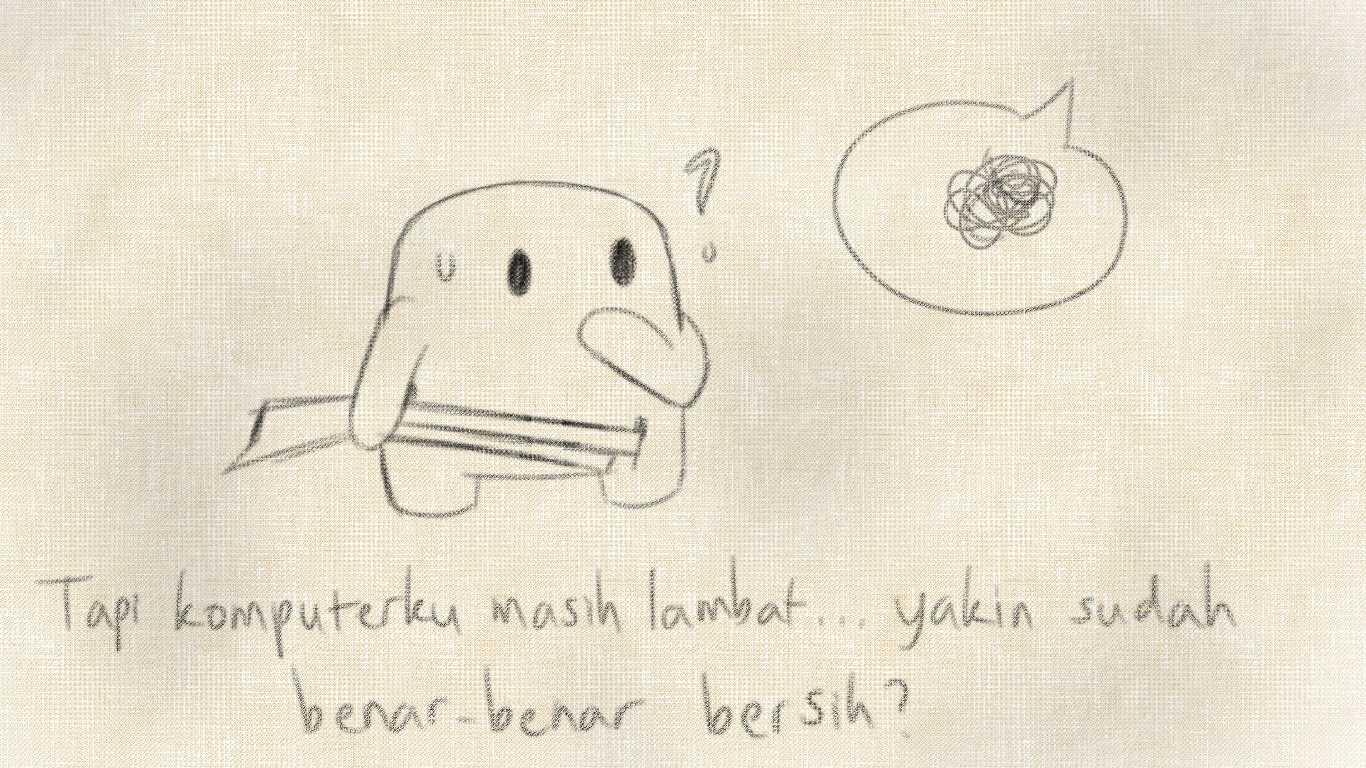 ?
Tapi komputerku masih lambat... yakin sudah
benar-benar bersih?